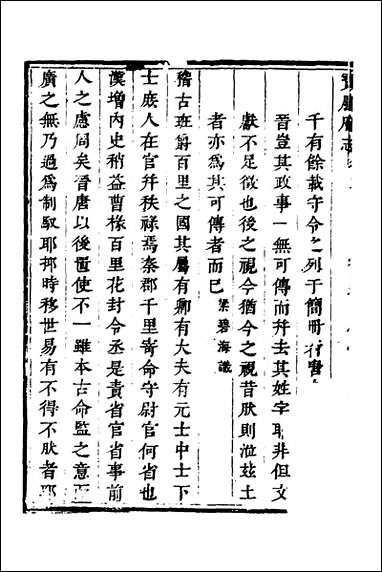 千有餘載守令之列于簡冊行實
晉豈其政事一無可傳而幷去其姓字耶非但文
獻不足徵也後之視今猶今之視昔肰則涖玆土
者亦爲其可傳者而已梁碧海識
稽古班爵百里之國其屬有卿有大夫有元士中士下
士庶人在官幷秩祿焉秦郡千里寄命守尉官何省也
漢增內史稍益曹椽百里花封令丞是責省官省事前
人之慮周矣晉唐以後置使不一雖本古命監之意而
廣之無乃過爲制馭耶抑時移世易有不得不肰者耶